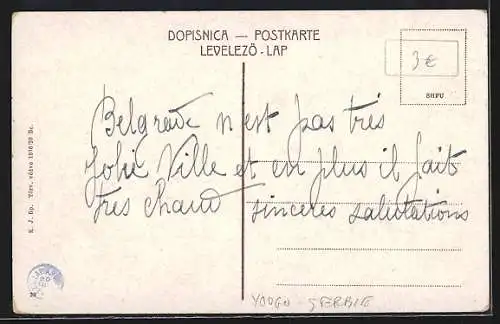 DOPISNICA — POSTKARTE
LEVELEZŐ - LAP
3 €
SHPU
Belgrade n'est pas très
Jolie Ville et en plus il fait
très chaud sincères salutations
YOUGO - SERBIE